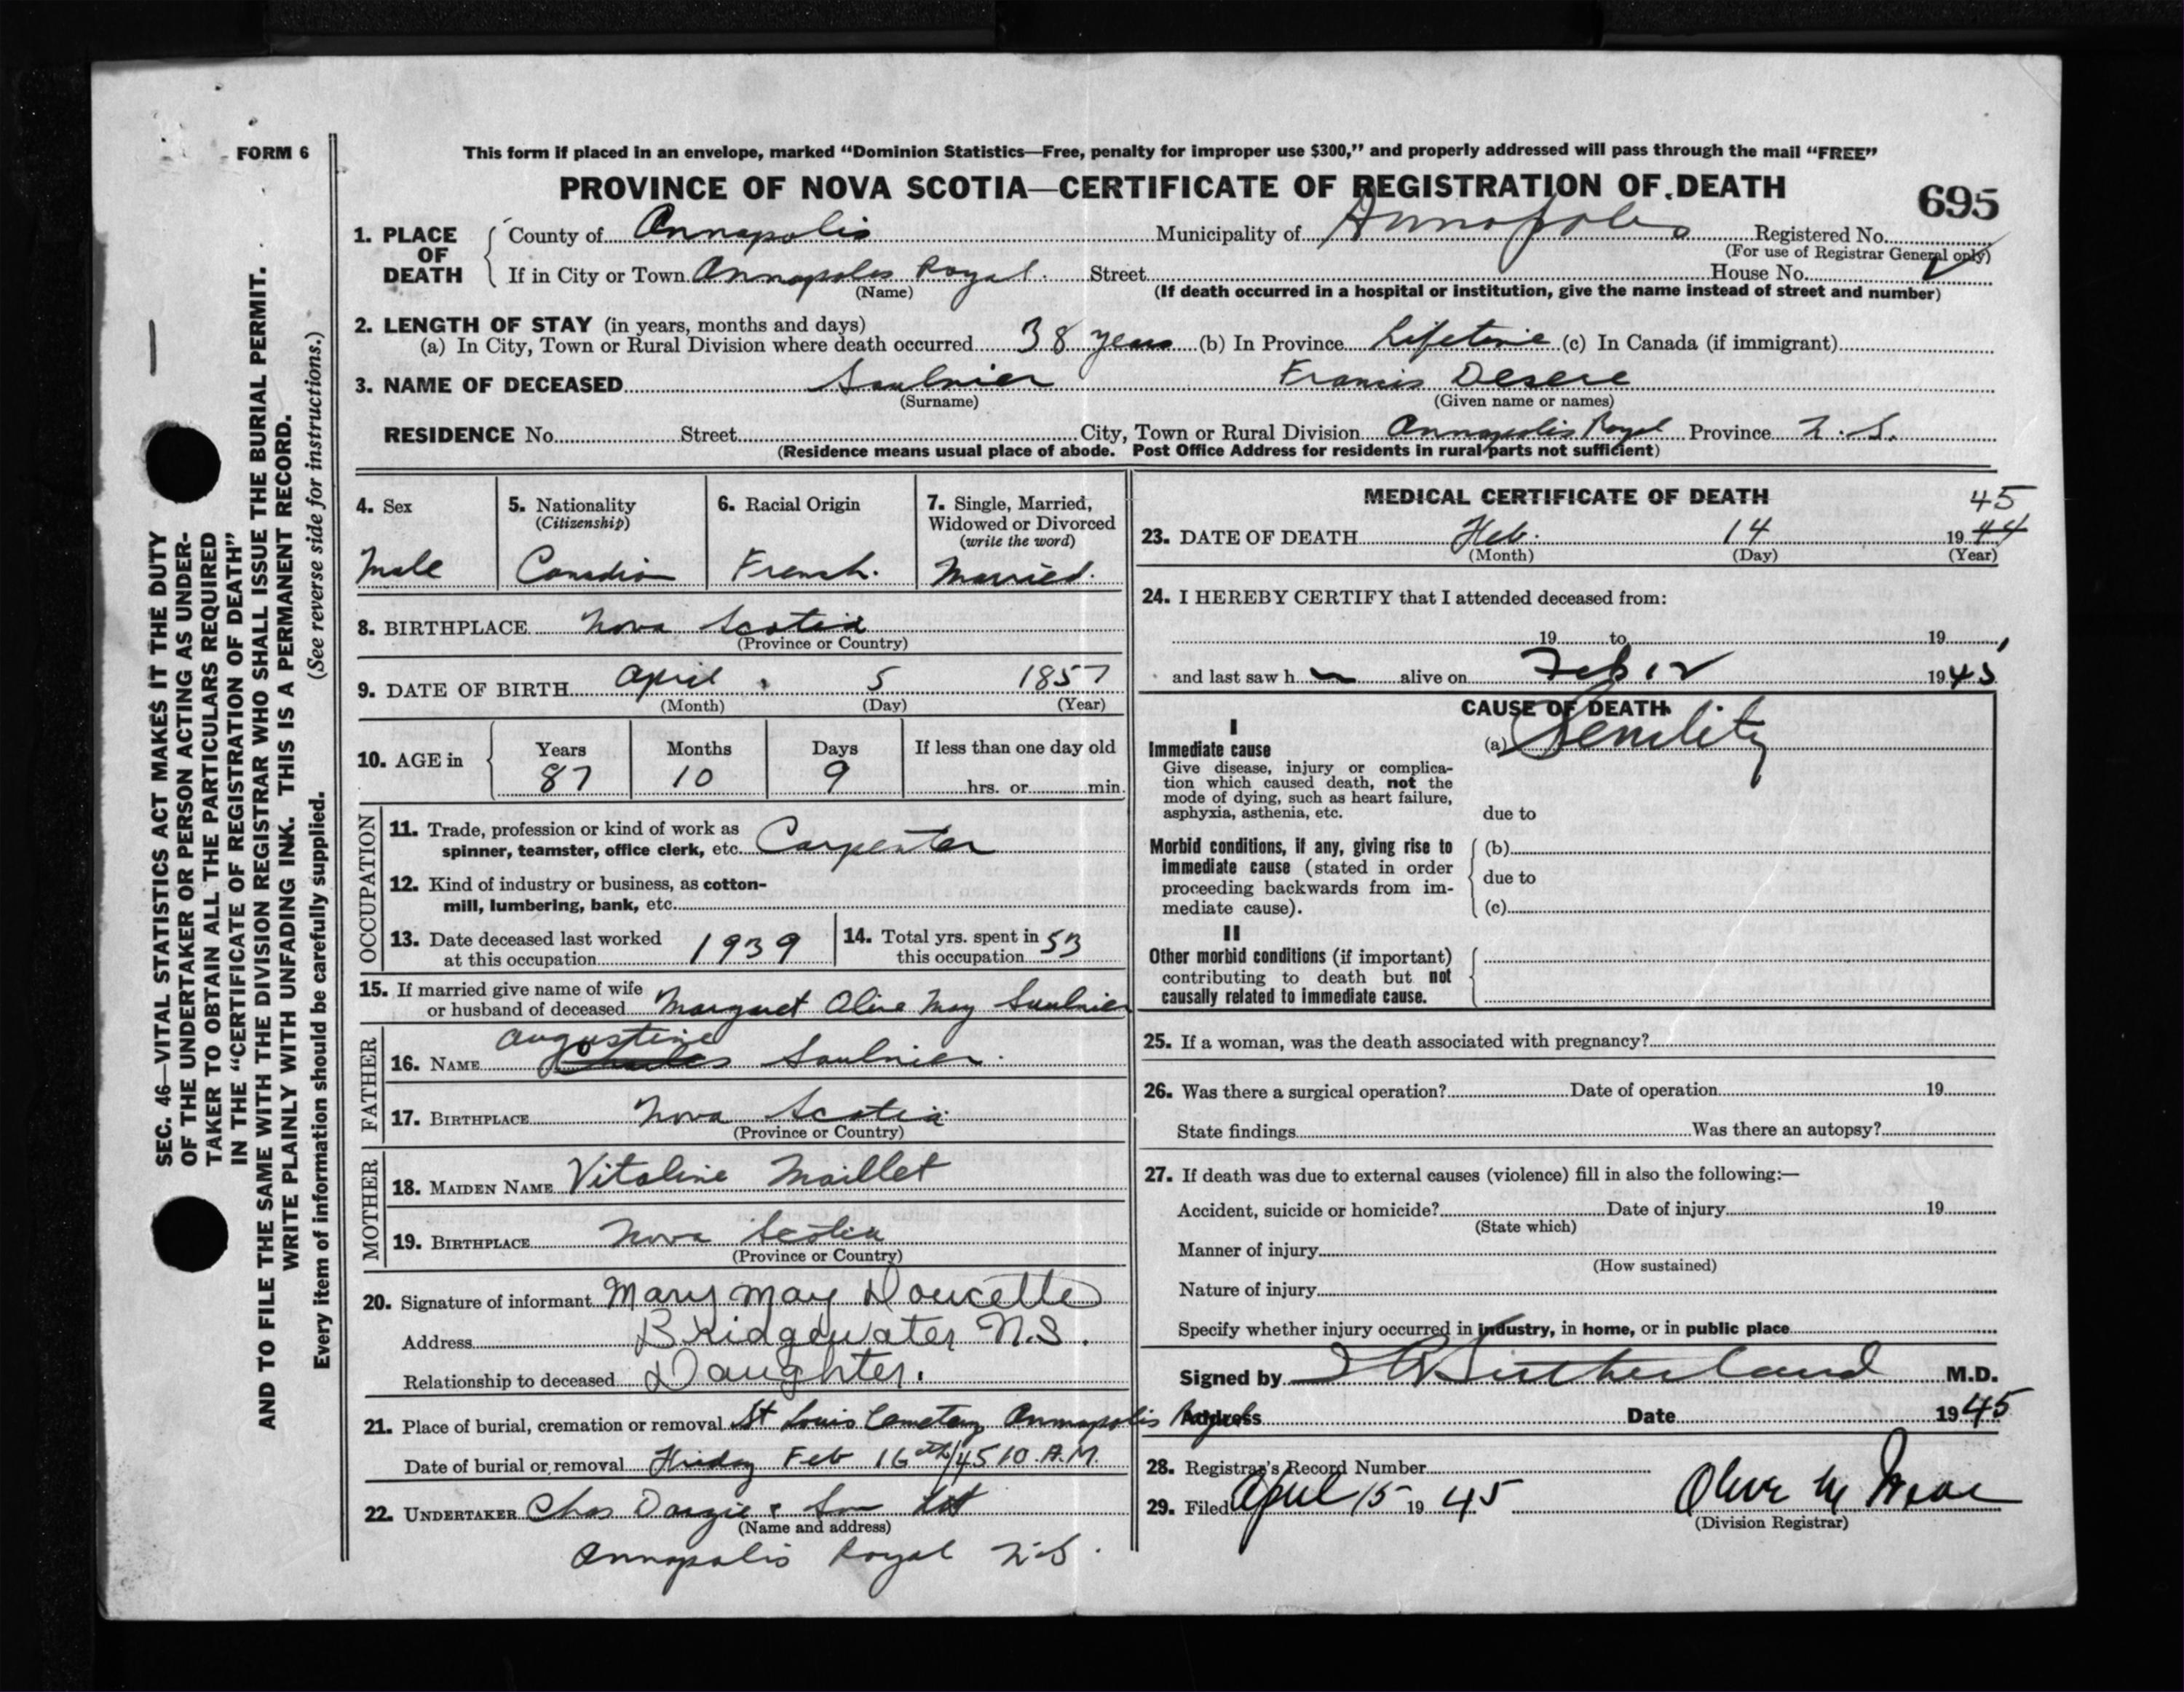 FORM 6
This form if placed in an envelope, marked “Dominion Statistics—Free, penalty for improper use $300,” and properly addressed will pass through the mail “FREE”
PROVINCE OF NOVA SCOTIA—CERTIFICATE OF REGISTRATION OF DEATH
695
1. PLACE OF DEATH
County of Annapolis Municipality of Annapolis Registered No.
(For use of Registrar General only)
If in City or Town Annapolis Royal. Street House No.
(Name) (If death occurred in a hospital or institution, give the name instead of street and number)
2. LENGTH OF STAY (in years, months and days)
(a) In City, Town or Rural Division where death occurred 38 years (b) In Province Lifetime (c) In Canada (if immigrant)
3. NAME OF DECEASED Saulnier Francis Desere
(Surname) (Given name or names)
RESIDENCE No. Street City, Town or Rural Division Annapolis Royal Province N.S.
(Residence means usual place of abode. Post Office Address for residents in rural parts not sufficient)
4. Sex
Male
5. Nationality
(Citizenship)
Canadian
6. Racial Origin
French.
7. Single, Married,
Widowed or Divorced
(write the word)
Married.
8. BIRTHPLACE Nova Scotia
(Province or Country)
9. DATE OF BIRTH April 5 1857
(Month) (Day) (Year)
10. AGE in
Years Months Days If less than one day old
87 10 9 hrs. or min.
OCCUPATION
11. Trade, profession or kind of work as
spinner, teamster, office clerk, etc. Carpenter
12. Kind of industry or business, as cotton-
mill, lumbering, bank, etc.
13. Date deceased last worked
at this occupation 1939
14. Total yrs. spent in
this occupation 53
15. If married give name of wife
or husband of deceased Margaret Olive May Saulnier
FATHER
Augustine
16. NAME Charles Saulnier.
17. BIRTHPLACE Nova Scotia
(Province or Country)
MOTHER
18. MAIDEN NAME Vitaline Maillet
19. BIRTHPLACE Nova Scotia
(Province or Country)
20. Signature of informant Mary May Doucette
Address Bridgewater N.S.
Relationship to deceased Daughter.
21. Place of burial, cremation or removal St Louis Cemetary Annapolis Royal
Date of burial or removal Friday Feb 16th/45 10 A.M.
22. UNDERTAKER Chas Dargie & Son Ltd
(Name and address)
Annapolis Royal N.S.
MEDICAL CERTIFICATE OF DEATH
45
23. DATE OF DEATH Feb. 14 19 44
(Month) (Day) (Year)
24. I HEREBY CERTIFY that I attended deceased from:
19 to 19
and last saw h alive on Feb 12 1945
CAUSE OF DEATH
I
Immediate cause
Give disease, injury or complica-
tion which caused death, not the
mode of dying, such as heart failure,
asphyxia, asthenia, etc.
(a) Senility
due to
Morbid conditions, if any, giving rise to
immediate cause (stated in order
proceeding backwards from im-
mediate cause).
(b)
due to
(c)
II
Other morbid conditions (if important)
contributing to death but not
causally related to immediate cause.
25. If a woman, was the death associated with pregnancy?
26. Was there a surgical operation? Date of operation 19
State findings Was there an autopsy?
27. If death was due to external causes (violence) fill in also the following:—
Accident, suicide or homicide? Date of injury 19
(State which)
Manner of injury
(How sustained)
Nature of injury
Specify whether injury occurred in industry, in home, or in public place
Signed by Sutherland M.D.
Address Date 1945
28. Registrar's Record Number
29. Filed April 15 1945 Olive M
(Division Registrar)
SEC. 46—VITAL STATISTICS ACT MAKES IT THE DUTY
OF THE UNDERTAKER OR PERSON ACTING AS UNDER-
TAKER TO OBTAIN ALL THE PARTICULARS REQUIRED
IN THE “CERTIFICATE OF REGISTRATION OF DEATH”
AND TO FILE THE SAME WITH THE DIVISION REGISTRAR WHO SHALL ISSUE THE BURIAL PERMIT.
WRITE PLAINLY WITH UNFADING INK. THIS IS A PERMANENT RECORD.
Every item of information should be carefully supplied. (See reverse side for instructions.)